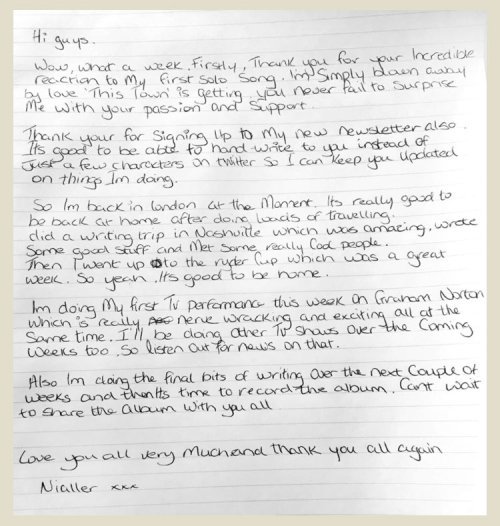 Hi guys.
Wow, what a week. Firstly, Thank you for your Incredible
reaction to My first solo song. Im Simply blown away
by love 'This Town' is getting. you never fail to surprise
Me with your passion and Support.
Thank your for Signing Up to My new newsletter also.
Its good to be able to hand write to you instead of
Just a few characters on twitter So I can keep you Updated
on things Im doing.
So Im back in London at the Moment. Its really good to
be back at home after doing loads of travelling.
did a writing trip in Nashville which was amazing, wrote
Some good stuff and Met some really Cool people.
Then I went up to the ryder Cup which was a great
week. So yeah, Its good to be home.
Im doing My first Tv performance this week on Graham Norton
which is really nerve wracking and exciting all at the
Same time. I'll be doing Other Tv Shows Over the Coming
Weeks too. So listen Out for news on that.
Also Im doing the final bits of writing Over the next Couple Of
weeks and then Its time to record the album. Cant wait
to share the album with you all
Love you all very Much and thank you all again
Nialler xxx